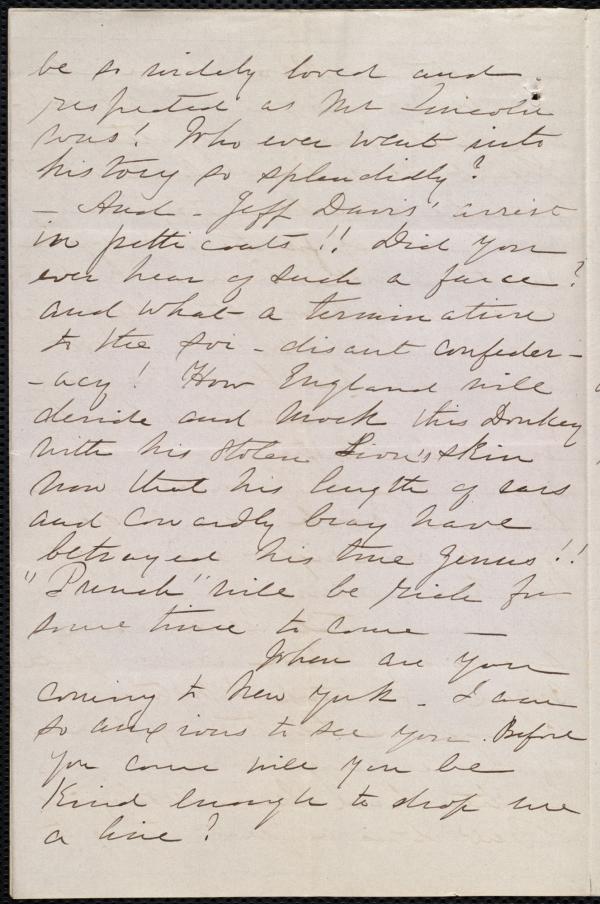 be so widely loved and
respected as Mr Lincoln
was! Who ever went into
history so splendidly?
— And - Jeff Davis' arrest
in petticoats!! Did you
ever hear of such a farce?
and what a termination
to the soi-disant confeder-
-acy! How England will
deride and mock this Donkey
with his stolen Lion's skin
now that his length of ears
and cowardly bray have
betrayed his true genus!!
"Punch" will be rich for
some time to come —
When are you
coming to New York - I am
so anxious to see you. Before
you come will you be
kind enough to drop me
a line?